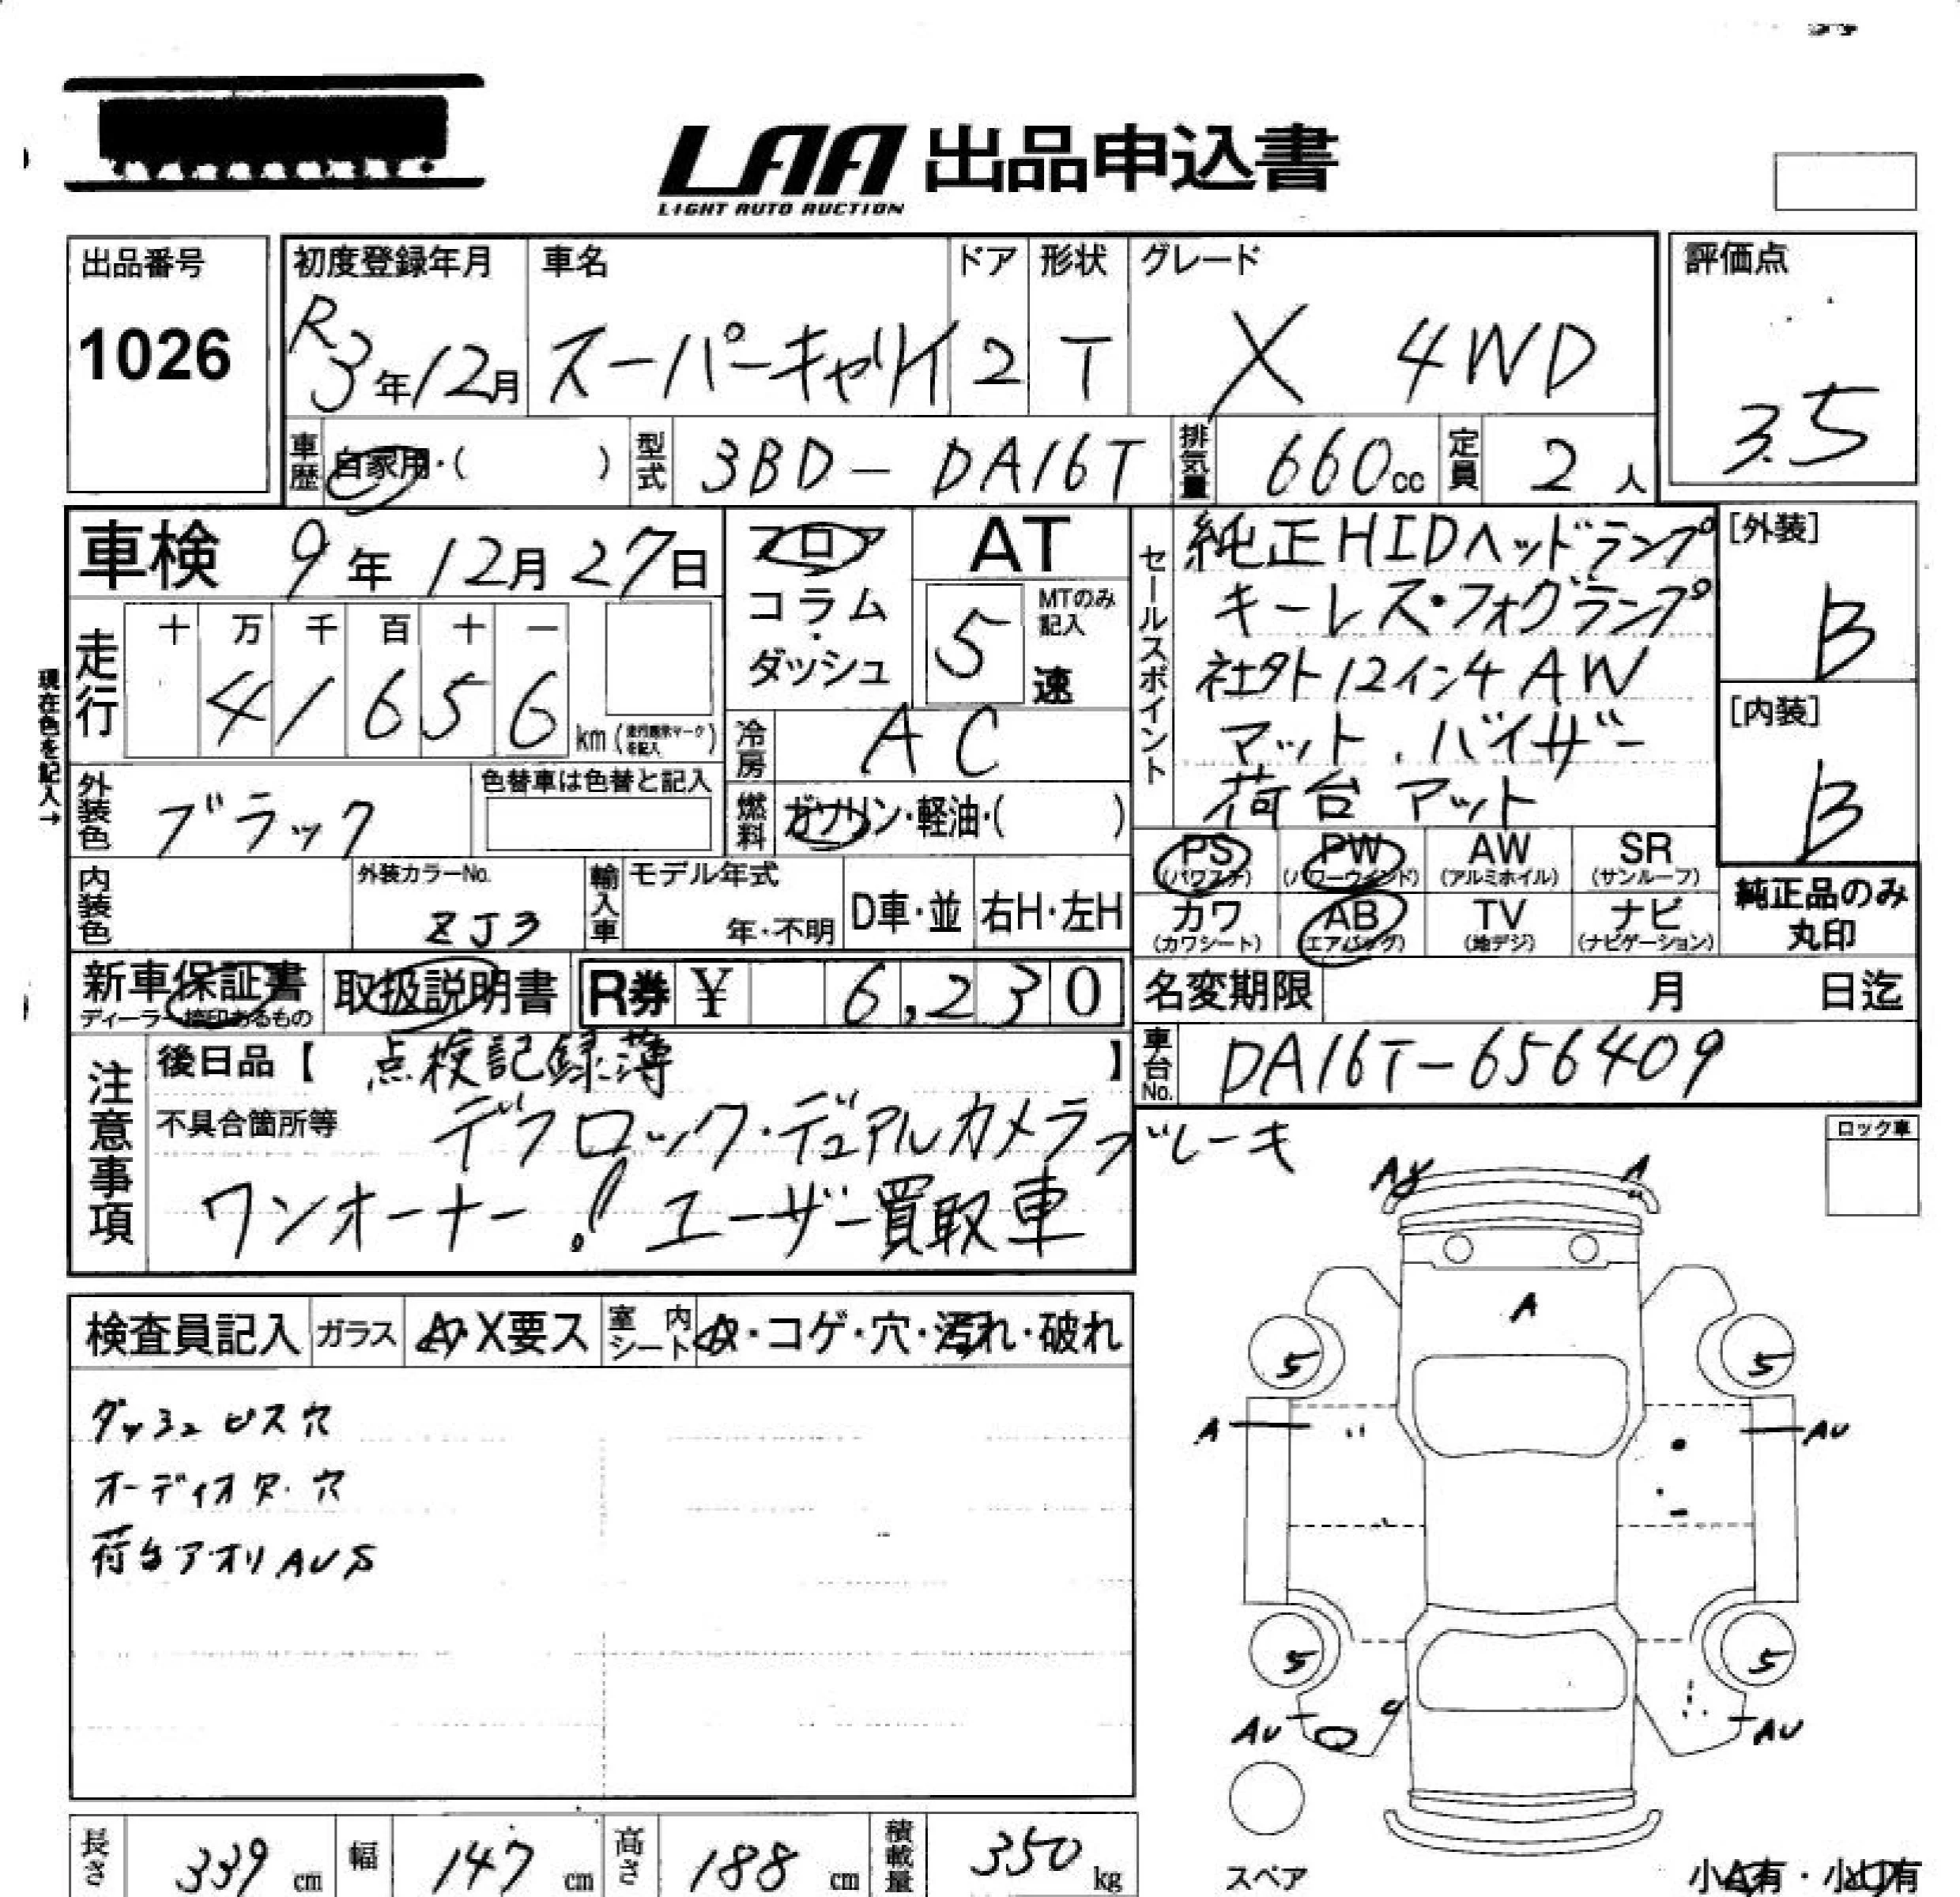 LAA 出品申込書
LIGHT AUTO AUCTION
出品番号
1026
初度登録年月
R3年12月
車名
スーパーキャリイ
ドア
2
形状
T
グレード
X 4WD
評価点
3.5
車歴
自家用・( )
型式
3BD-DA16T
排気量
660cc
定員
2人
車検 9年12月27日
フロア
コラム
・
ダッシュ
AT
5
MTのみ
記入
速
セールスポイント
純正HIDヘッドランプ
キーレス・フォグランプ
社外12インチAW
マット、バイザー
荷台マット
[外装]
B
[内装]
B
現在色を記入→
走行
十 万 千 百 十 一
4 1 6 5 6
km(走行距離マークを記入)
冷房
AC
外装色
ブラック
色替車は色替と記入
燃料
ガソリン・軽油・( )
PS
(パワステ)
PW
(パワーウインド)
AW
(アルミホイル)
SR
(サンルーフ)
カワ
(カワシート)
AB
(エアバッグ)
TV
(地デジ)
ナビ
(ナビゲーション)
純正品のみ
丸印
内装色
外装カラーNo.
ZJ3
輸入車
モデル年式
年・不明
D車・並
右H・左H
新車保証書
ディーラー捺印あるもの
取扱説明書
R券 ¥ 6,230
名変期限 月 日迄
車台No.
DA16T-656409
注意事項
後日品【 点検記録簿 】
不具合箇所等
デフロック・デュアルカメラブレーキ
ワンオーナー! ユーザー買取車
ロック車
検査員記入
ガラス
A・X要ス
室内シート
A・コゲ・穴・汚れ・破れ
ダッシュ ビス穴
オーディオ欠・穴
荷台アオリ AUS
A A
A
5 5
A AU
5 5
AU AU
スペア
小A有・小U有
長さ
339cm
幅
147cm
高さ
188cm
積載量
350kg